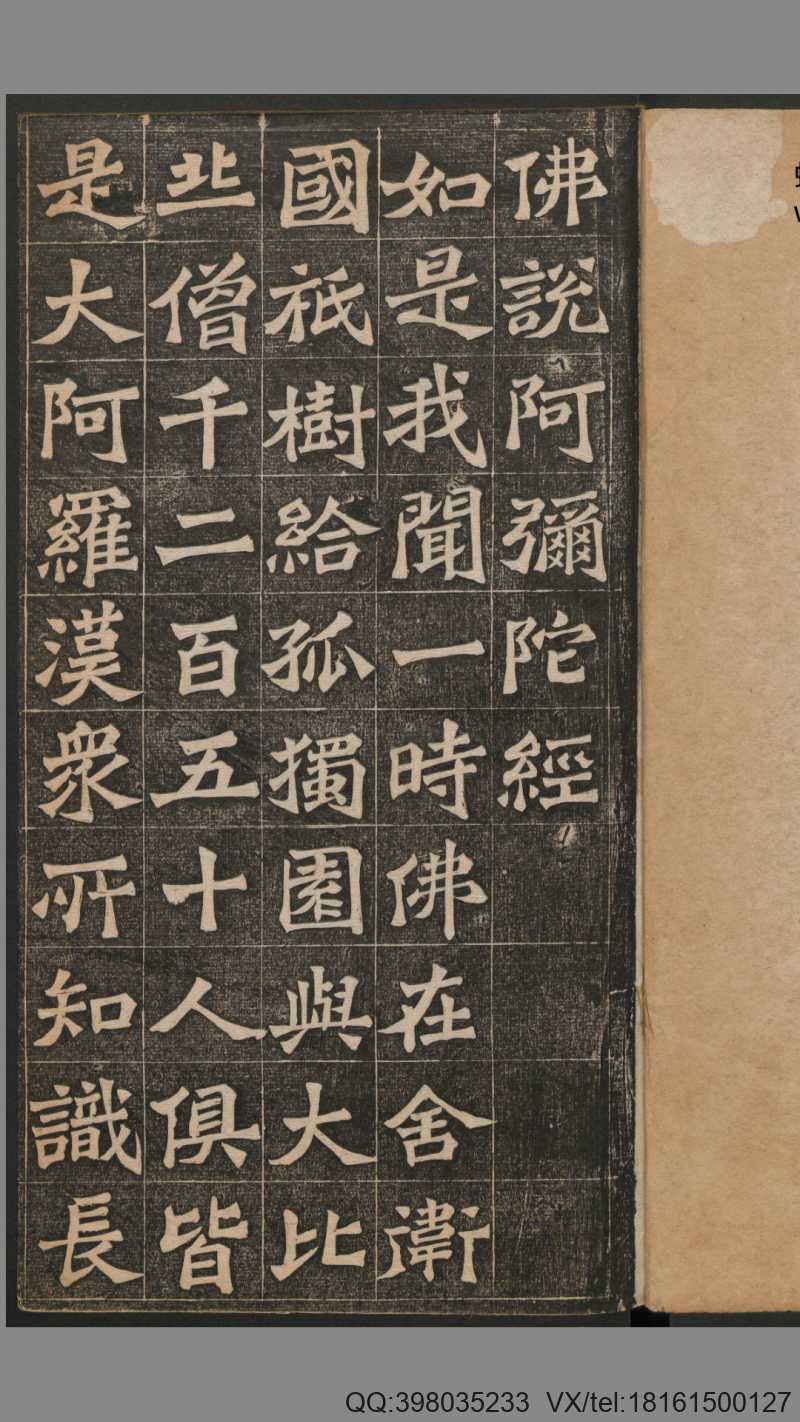 佛說阿彌陀經
如是我聞一時佛在舍衛
國祇樹給孤獨園與大比
丘僧千二百五十人俱皆
是大阿羅漢衆所知識長
QQ:398035233 VX/tel:18161500127